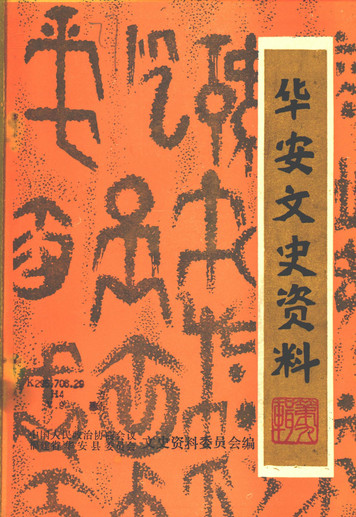 华安文史资料
K295.706.29
H4
9
中国人民政治协商会议
福建省华安县委员会 文史资料委员会编